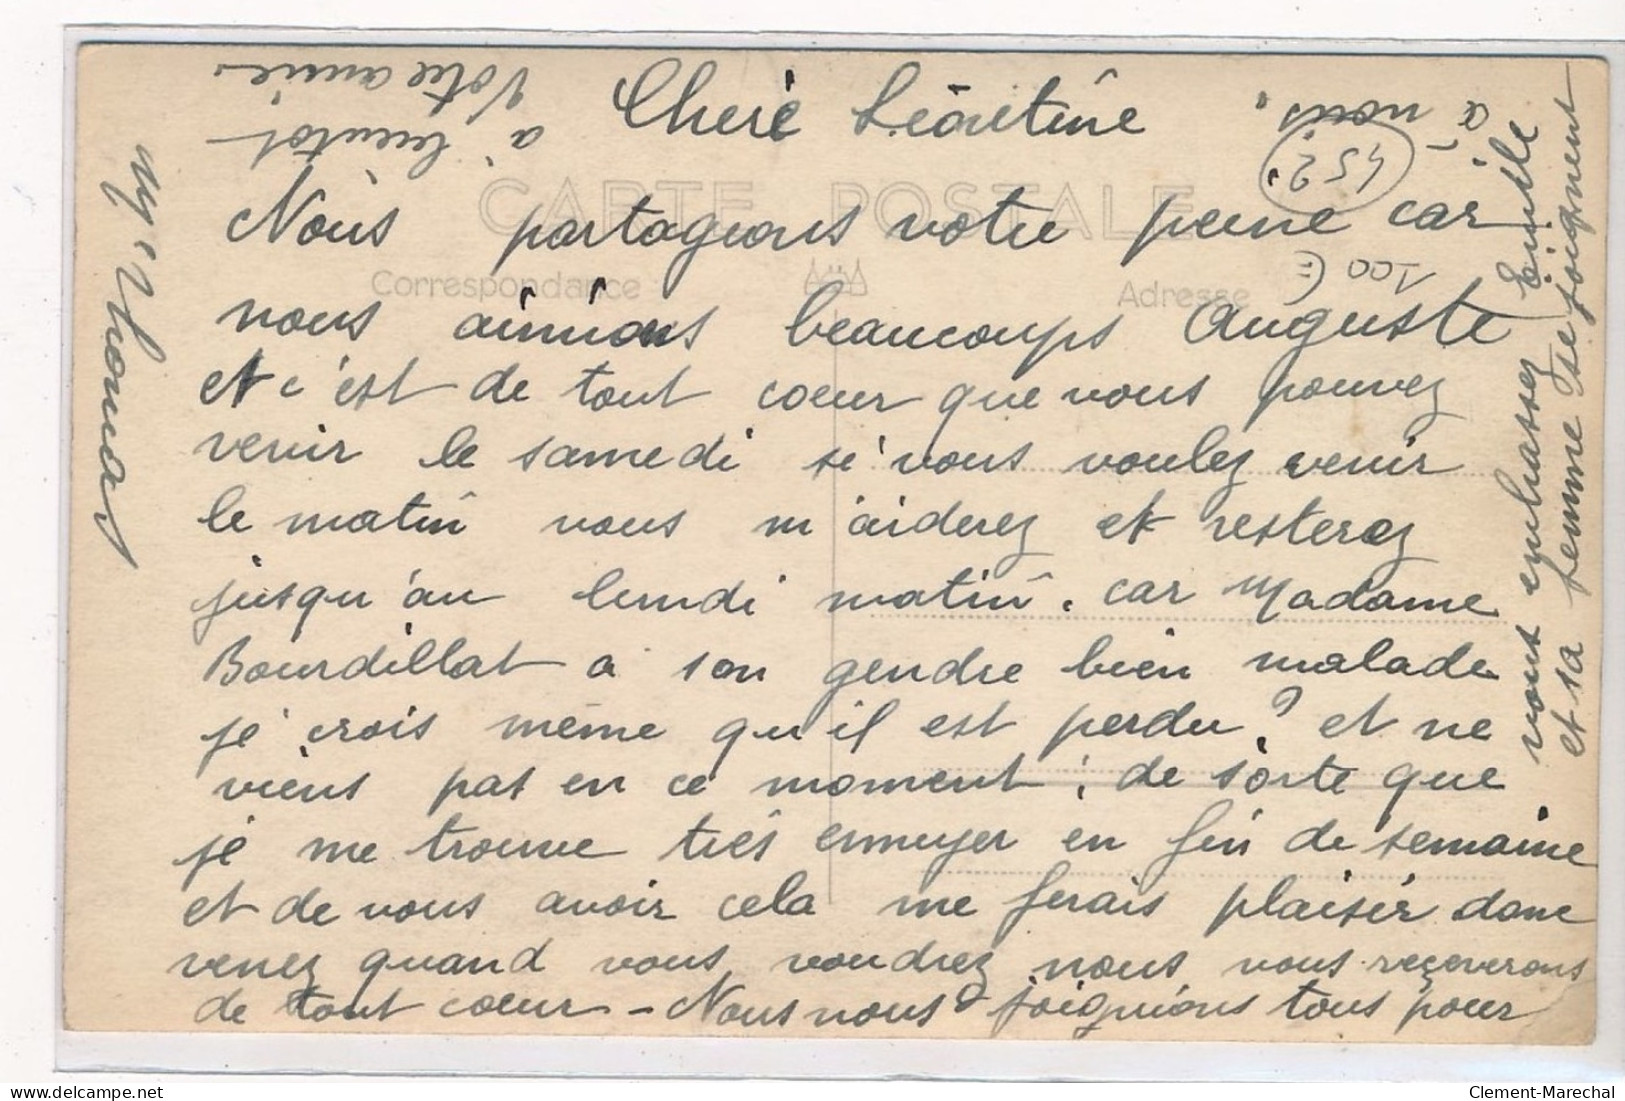 Cheré Léontine
CARTE POSTALE
Correspondance
Adresse
Nous partageons votre peine car
nous aimions beaucoups Auguste
et c'est de tout coeur que vous pouvez
venir le samedi si vous voulez venir
le matin vous m'aiderez et resterez
jusqu'au lundi matin. car Madame
Bourdillat a son gendre bien malade
je crois même qu'il est perdu? et ne
viens pas en ce moment, de sorte que
je me trouve très ennuyer en fin de semaine
et de vous avoir cela me ferais plaisir donc
venez quand vous voudrez nous vous reçeverons
de tout coeur - Nous nous joignions tous pour
vous embrasser Emile
et sa femme se joignent
à nous.
à bientôt
Votre amie
Mme Thomas
452
100 €
Clement-Marechal